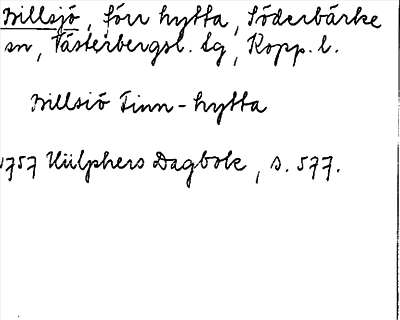 Billsjö, förr hytta, Söderbärke
sn, Västerbergsl. lg, Kopp. l.
Billsiö Finn-hytta
1757 Hülphers Dagbok, s. 577.